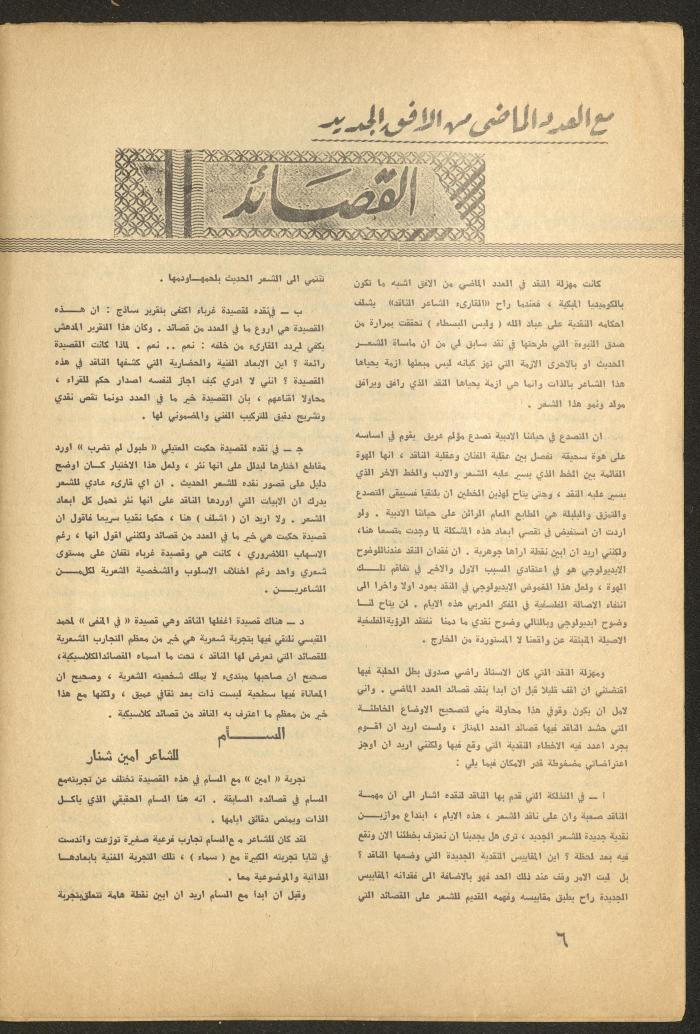 مع العدد الماضي من الافق الجديد
القصائد
كانت مهزلة النقد في العدد الماضي من الافق اشبه ما تكون
بالكوميديا المبكية ، فعندما راح «القارىء الشاعر الناقد» يشلف
احكامه النقدية على عباد الله ( وليس البسطاء ) تحققت بمرارة من
صدق النبوءة التي طرحتها في نقد سابق لي من ان ماساة الشعر
الحديث او بالاحرى الازمة التي تهز كيانه ليس مبعثها ازمة يحياها
هذا الشاعر بالذات وانما هي ازمة يحياها النقد الذي رافق ويرافق
مولد ونمو هذا الشعر .
ان التصدع في حياتنا الادبية تصدع مؤلم عريق يقوم في اساسه
على هوة سحيقة تفصل بين عقلية الفنان وعقلية الناقد ، انها الهوة
القائمة بين الخط الذي يسير عليه الشعر والادب والخط الاخر الذي
يسير عليه النقد ، وحتى يتاح لهذين الخطين ان يلتقيا فسيبقى التصدع
والتمزق والبلبلة هي الطابع العام الرائن على حياتنا الادبية . ولو
اردت ان استفيض في تقصي ابعاد هذه المشكلة لما وجدت متسعا هنا،
ولكنني اريد ان ابين نقطة اراها جوهرية . ان فقدان النقد عندنا للوضوح
الايديولوجي هو في اعتقادي السبب الاول والاخير في تفاقم تلك
الهوة ، ولعل هذا الغموض الايديولوجي في النقد يعود اولا واخرا الى
انتفاء الاصالة الفلسفية في الفكر العربي هذه الايام . لن يتاح لنا
وضوح ايديولوجي وبالتالي وضوح نقدي ما دمنا نفتقد الرؤية الفلسفية
الاصيلة المنبثقة عن واقعنا لا المستوردة من الخارج .
ومهزلة النقد التي كان الاستاذ راضي صدوق بطل الحلبة فيها
اقتضتني ان اقف قليلا قبل ان ابدا بنقد قصائد العدد الماضي . واني
لامل ان يكون وقوفي هذا محاولة مني لتصحيح الاوضاع الخاطئة
التي حشد الناقد فيها قصائد العدد الممتاز ، ولست اريد ان اقوم
بجرد اعدد فيه الاخطاء النقدية التي وقع فيها ولكنني اريد ان اوجز
اعتراضاتي مضغوطة قدر الامكان فيما يلي :
أ — في الفذلكة التي قدم بها الناقد لنقده اشار الى ان مهمة
الناقد صعبة وان على ناقد الشعر ، هذه الايام ، ابتداع موازين
نقدية جديدة للشعر الجديد ، ترى هل يجدينا ان نعترف بخطئنا الان ونقع
فيه بعد لحظة ؟ اين المقاييس النقدية الجديدة التي وضعها الناقد ؟
بل ليت الامر وقف عند ذلك الحد فهو بالاضافة الى فقدانه المقاييس
الجديدة راح يطبق مقاييسه وفهمه القديم للشعر على القصائد التي
تنتمي الى الشعر الحديث بلحمها ودمها .
ب — في نقده لقصيدة غرباء اكتفى بتقرير ساذج : ان هذه
القصيدة هي اروع ما في العدد من قصائد . وكان هذا التقرير المدهش
يكفي ليردد القارىء من خلفه : نعم .. نعم . لماذا كانت القصيدة
رائعة ؟ اين الابعاد الفنية والحضارية التي كشفها الناقد في هذه
القصيدة ؟ انني لا ادري كيف اجاز لنفسه اصدار حكم للقراء ،
محاولا اقناعهم ، بان القصيدة خير ما في العدد دونما تقص نقدي
وتشريح دقيق للتركيب الفني والمضموني لها .
جـ — في نقده لقصيدة حكمت العتيلي « طبول لم تضرب » اورد
مقاطع اختارها ليدلل على انها نثر ، ولعل هذا الاختيار كان اوضح
دليل على قصور نقده للشعر الحديث . ان اي قارىء عادي للشعر
يدرك ان الابيات التي اوردها الناقد على انها نثر تحمل كل ابعاد
الشعر . ولا اريد ان ( اشلف ) هنا ، حكما نقديا سريعا فاقول ان
قصيدة حكمت هي خير ما في العدد من قصائد ولكنني اقول انها ، رغم
الاسهاب اللاضروري ، كانت هي وقصيدة غرباء تقفان على مستوى
شعري واحد رغم اختلاف الاسلوب والشخصية الشعرية لكل من
الشاعرين .
د — هناك قصيدة اغفلها الناقد وهي قصيدة « في المنفى » لمحمد
القيسي نلتقي فيها بتجربة شعرية هي خير من معظم التجارب الشعرية
للقصائد التي تعرض لها الناقد ، تحت ما اسماه القصائد الكلاسيكية،
صحيح ان صاحبها مبتدىء لا يملك شخصيته الشعرية ، وصحيح ان
المعاناة فيها سطحية ليست ذات بعد ثقافي عميق ، ولكنها مع هذا
خير من معظم ما اعترف به الناقد من قصائد كلاسيكية .
السأم
للشاعر امين شنار
تجربة « امين » مع السام في هذه القصيدة تختلف عن تجربته مع
السام في قصائده السابقة . انه هنا السام الحقيقي الذي ياكل
الذات ويمتص دقائق ايامها .
لقد كان للشاعر مع السام تجارب فرعية صغيرة توزعت واندست
في ثنايا تجربته الكبيرة مع ( سماء ) ، تلك التجربة الفنية بابعادها
الذاتية والموضوعية معا .
وقبل ان ابدا مع السام اريد ان ابين نقطة هامة تتعلق بتجربة
٦